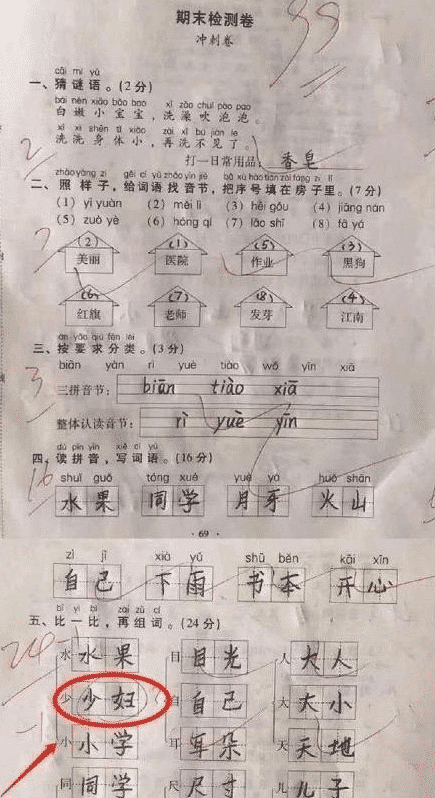 期末检测卷
99
冲刺卷
cāi mí yǔ
一、猜谜语。(2分)
bái nèn xiǎo bǎo bao xǐ zǎo chuī pào pao
白嫩小宝宝，洗澡吹泡泡。
xǐ xǐ shēn tǐ xiǎo zài xǐ bú jiàn le
洗洗身体小，再洗不见了。
2
打一日常用品：香皂
zhào yàng zi gěi cí yǔ zhǎo yīn jié bǎ xù hào tián zài fáng zi lǐ
二、照样子，给词语找音节，把序号填在房子里。(7分)
(1) yī yuàn (2) měi lì (3) hēi gǒu (4) jiāng nán
(5) zuò yè (6) hóng qí (7) lǎo shī (8) fā yá
7
(2) (1) (5) (3)
美丽 医院 作业 黑狗
(6) (7) (8) (4)
红旗 老师 发芽 江南
àn yāo qiú fēn lèi
三、按要求分类。(3分)
biān yán rì yuè tiào wǒ yīn xiā
3
三拼音节： biān tiào xiā
整体认读音节： rì yuè yīn
dú pīn yīn xiě cí yǔ
四、读拼音，写词语。(16分)
16
shuǐ guǒ tóng xué yuè yá huǒ shān
水果 同学 月牙 火山
· 69 ·
zì jǐ xià yǔ shū běn kāi xīn
自己 下雨 书本 开心
bǐ yi bǐ zài zǔ cí
五、比一比，再组词。(24分)
水 水果 目 目光 人 大人
少 少妇 自 自己 大 大小
-1
小 小学 耳 耳朵 天 天地
同 同学 尺 尺寸 儿 儿子